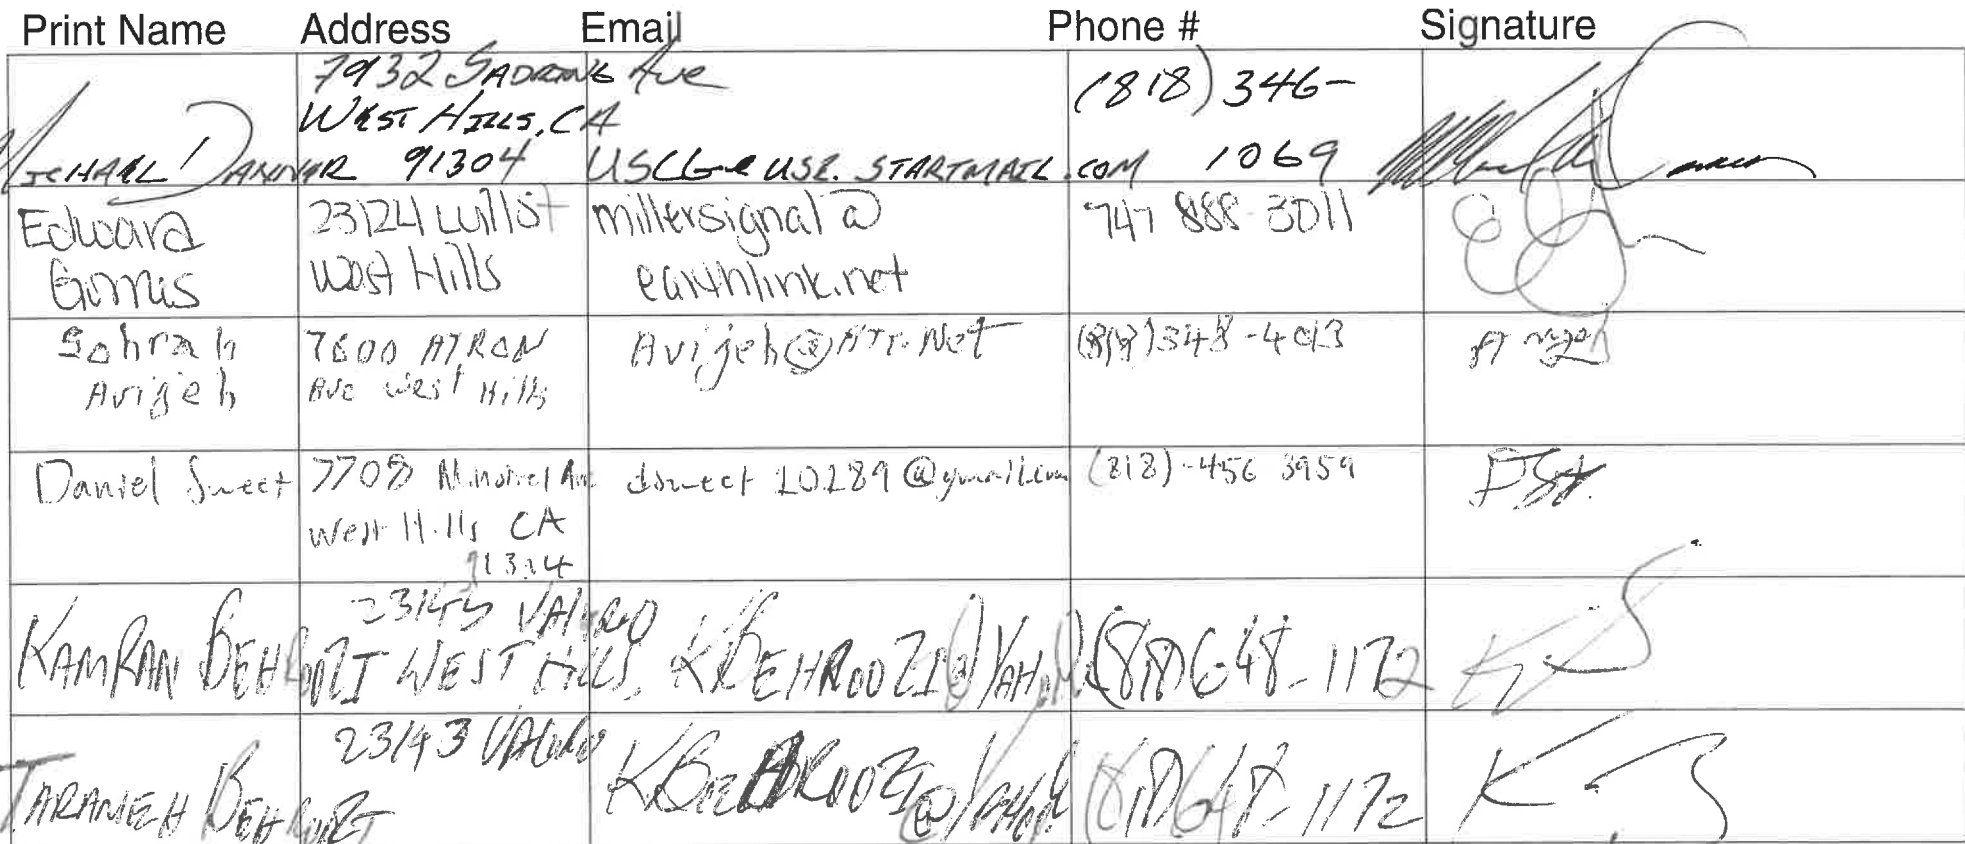 Print Name Address Email Phone # Signature
7932 Sadring Ave
West Hills, CA
Michael Danner 91304 USCG USE.STARTMAIL.COM
(818) 346-
1069
Edward
Gomis
23124 Wills St
West Hills
millersignal@
earthlink.net
747 888-3011
Sohrab
Avijeh
7600 AYRON
Ave West Hills
Avijeh@ATT.Net
(818) 348-4013
Daniel Sweet
7708 Minstrel Ave
West Hills CA
91304
dsweet10289@gmail.com
(818)-456 3959
KAMRAN BEHROOZI
23143 VALERIO
WEST HILLS,
KBEHROOZI@YAHOO.
(818)648-1172
TARANEH BEHROOZI
23143 VALERIO
KBEHROOZI@YAHOO
(818)648-1172